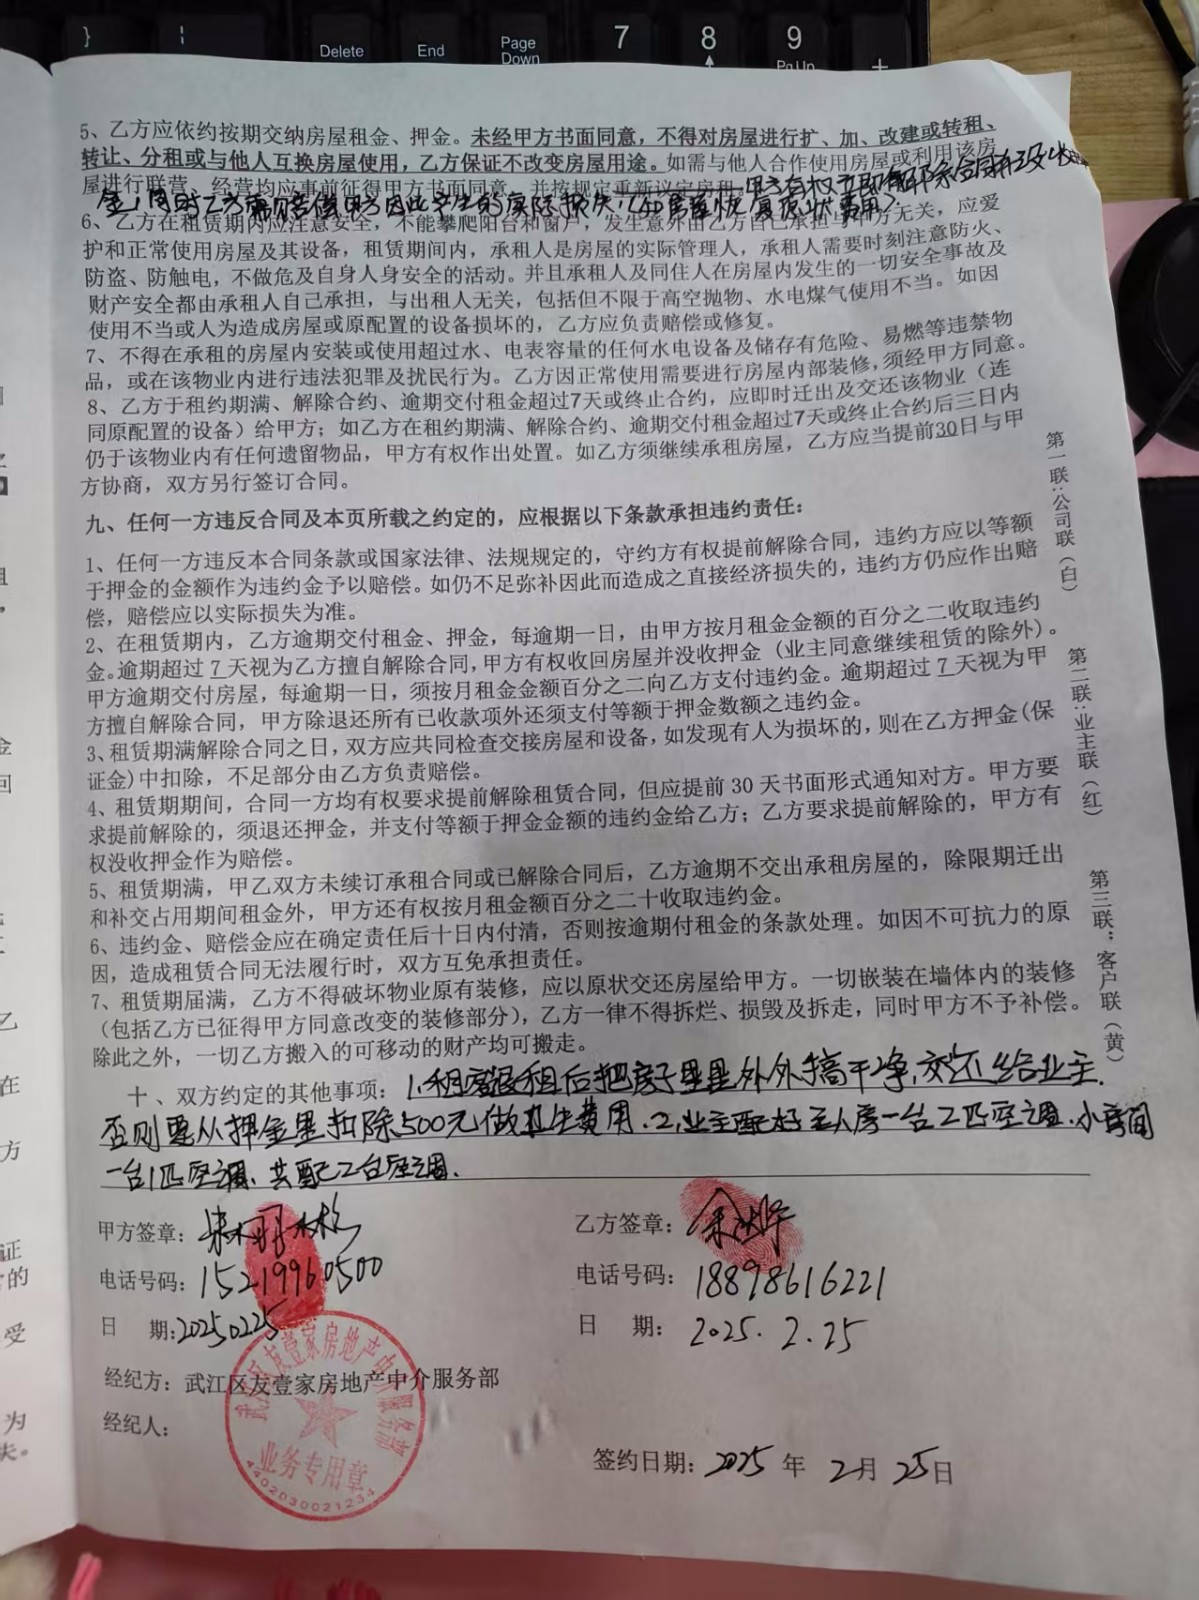 }
Delete
End
Page
Down
7
8
9
PgUp
+
5、乙方应依约按期交纳房屋租金、押金。未经甲方书面同意，不得对房屋进行扩、加、改建或转租、
转让、分租或与他人互换房屋使用，乙方保证不改变房屋用途。如需与他人合作使用房屋或利用该房
屋进行联营、经营均应事前征得甲方书面同意，并按规定重新议定房租。甲方有权立即解除合同并没收押
金，同时乙方需赔偿甲方因此产生的实际损失（如房屋恢复原状费用）。
6、乙方在租赁期内应注意安全，不能攀爬阳台和窗户，发生意外由乙方自己承担与甲方无关，应爱
护和正常使用房屋及其设备，租赁期间内，承租人是房屋的实际管理人，承租人需要时刻注意防火、
防盗、防触电，不做危及自身人身安全的活动。并且承租人及同住人在房屋内发生的一切安全事故及
财产安全都由承租人自己承担，与出租人无关，包括但不限于高空抛物、水电煤气使用不当。如因
使用不当或人为造成房屋或原配置的设备损坏的，乙方应负责赔偿或修复。
7、不得在承租的房屋内安装或使用超过水、电表容量的任何水电设备及储存有危险、易燃等违禁物
品，或在该物业内进行违法犯罪及扰民行为。乙方因正常使用需要进行房屋内部装修，须经甲方同意。
8、乙方于租约期满、解除合约、逾期交付租金超过7天或终止合约，应即时迁出及交还该物业（连
同原配置的设备）给甲方；如乙方在租约期满、解除合约、逾期交付租金超过7天或终止合约后三日内
仍于该物业内有任何遗留物品，甲方有权作出处置。如乙方须继续承租房屋，乙方应当提前30日与甲
方协商，双方另行签订合同。
九、任何一方违反合同及本页所载之约定的，应根据以下条款承担违约责任：
1、任何一方违反本合同条款或国家法律、法规规定的，守约方有权提前解除合同，违约方应以等额
于押金的金额作为违约金予以赔偿。如仍不足弥补因此而造成之直接经济损失的，违约方仍应作出赔
偿，赔偿应以实际损失为准。
2、在租赁期内，乙方逾期交付租金、押金，每逾期一日，由甲方按月租金金额的百分之二收取违约
金。逾期超过 7 天视为乙方擅自解除合同，甲方有权收回房屋并没收押金（业主同意继续租赁的除外）。
甲方逾期交付房屋，每逾期一日，须按月租金金额百分之二向乙方支付违约金。逾期超过 7 天视为甲
方擅自解除合同，甲方除退还所有已收款项外还须支付等额于押金数额之违约金。
3、租赁期满解除合同之日，双方应共同检查交接房屋和设备，如发现有人为损坏的，则在乙方押金(保
证金)中扣除，不足部分由乙方负责赔偿。
4、租赁期期间，合同一方均有权要求提前解除租赁合同，但应提前 30 天书面形式通知对方。甲方要
求提前解除的，须退还押金，并支付等额于押金金额的违约金给乙方；乙方要求提前解除的，甲方有
权没收押金作为赔偿。
5、租赁期满，甲乙双方未续订承租合同或已解除合同后，乙方逾期不交出承租房屋的，除限期迁出
和补交占用期间租金外，甲方还有权按月租金额百分之二十收取违约金。
6、违约金、赔偿金应在确定责任后十日内付清，否则按逾期付租金的条款处理。如因不可抗力的原
因，造成租赁合同无法履行时，双方互免承担责任。
7、租赁期届满，乙方不得破坏物业原有装修，应以原状交还房屋给甲方。一切嵌装在墙体内的装修
（包括乙方已征得甲方同意改变的装修部分），乙方一律不得拆烂、损毁及拆走，同时甲方不予补偿。
除此之外，一切乙方搬入的可移动的财产均可搬走。
十、双方约定的其他事项：1、租房退租后把房子里里外外搞干净，交还给业主.
否则要从押金里扣除500元做卫生费用.2、业主配好主人房一台2匹空调、小房间
一台1匹空调、共配2台空调.
第一联：公司联（白）
第二联：业主联（红）
第三联：客户联（黄）
甲方签章：
电话号码：15219960500
日 期：20250225
乙方签章：
电话号码：18898616221
日 期：2025.2.25
经纪方：武江区友壹家房地产中介服务部
经纪人：
武江区友壹家房地产中介服务部
业务专用章
4402030021234
签约日期：2025 年 2月 25日